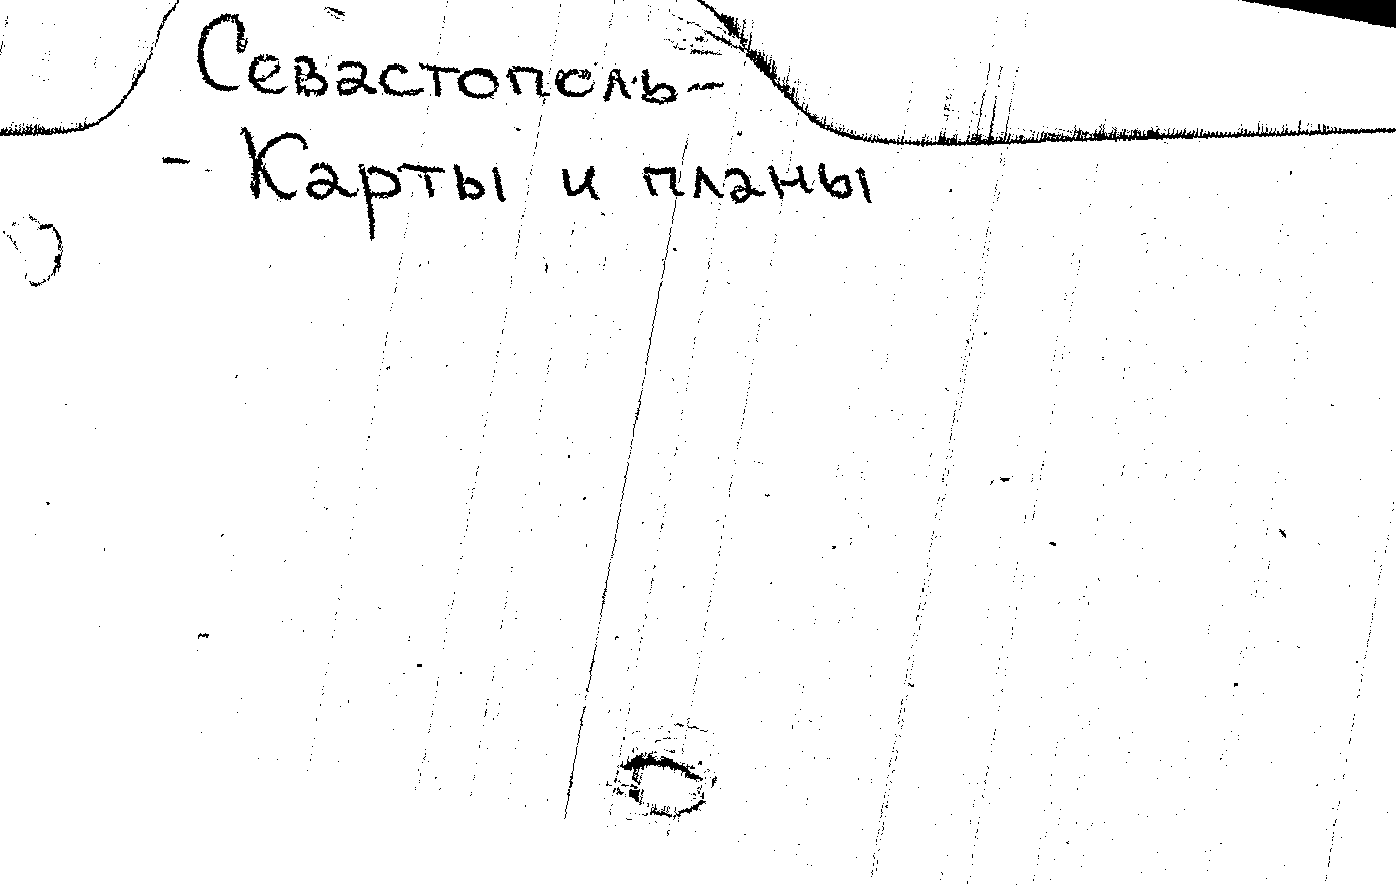 Севастополь-
- Карты и планы